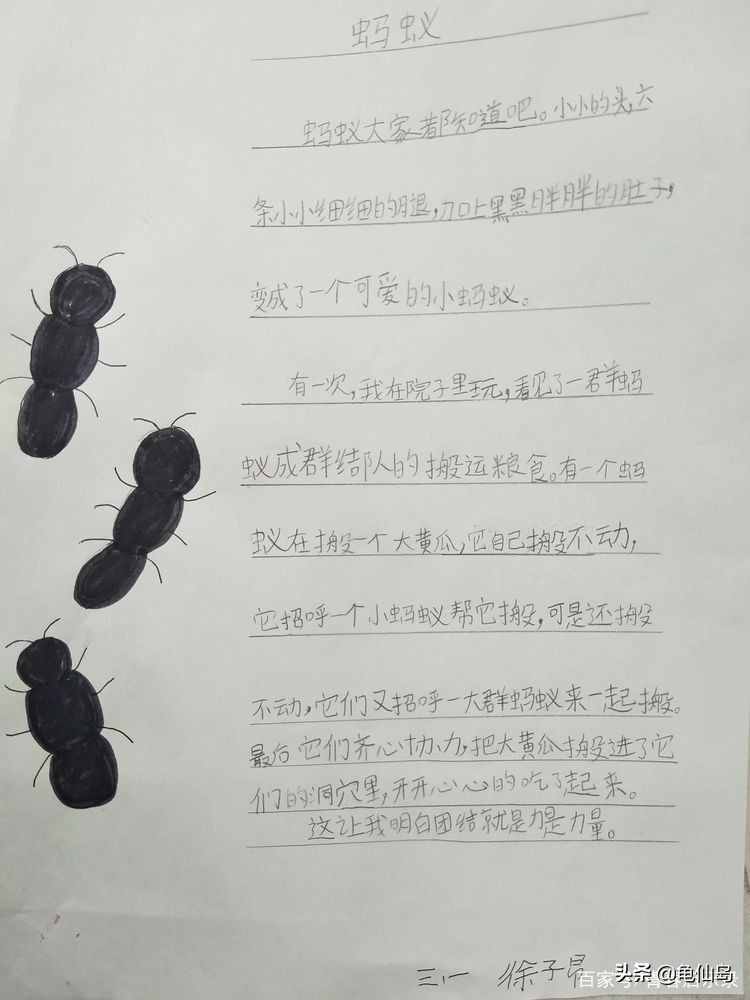 蚂蚁
蚂蚁大家都知道吧。小小的头,六
条小小细细的腿,加上黑黑胖胖的肚子,
变成了一个可爱的小蚂蚁。
有一次,我在院子里玩,看见了一群蚂
蚁成群结队的搬运粮食。有一个蚂
蚁在搬一个大黄瓜,它自己搬不动,
它招呼一个小蚂蚁帮它搬,可是还搬
不动,它们又招呼一大群蚂蚁来一起搬。
最后它们齐心协力,把大黄瓜搬进了它
们的洞穴里,开开心心的吃了起来。
这让我明白团结就是力是力量。
三.一 徐子昂
头条@龟仙岛
百家号